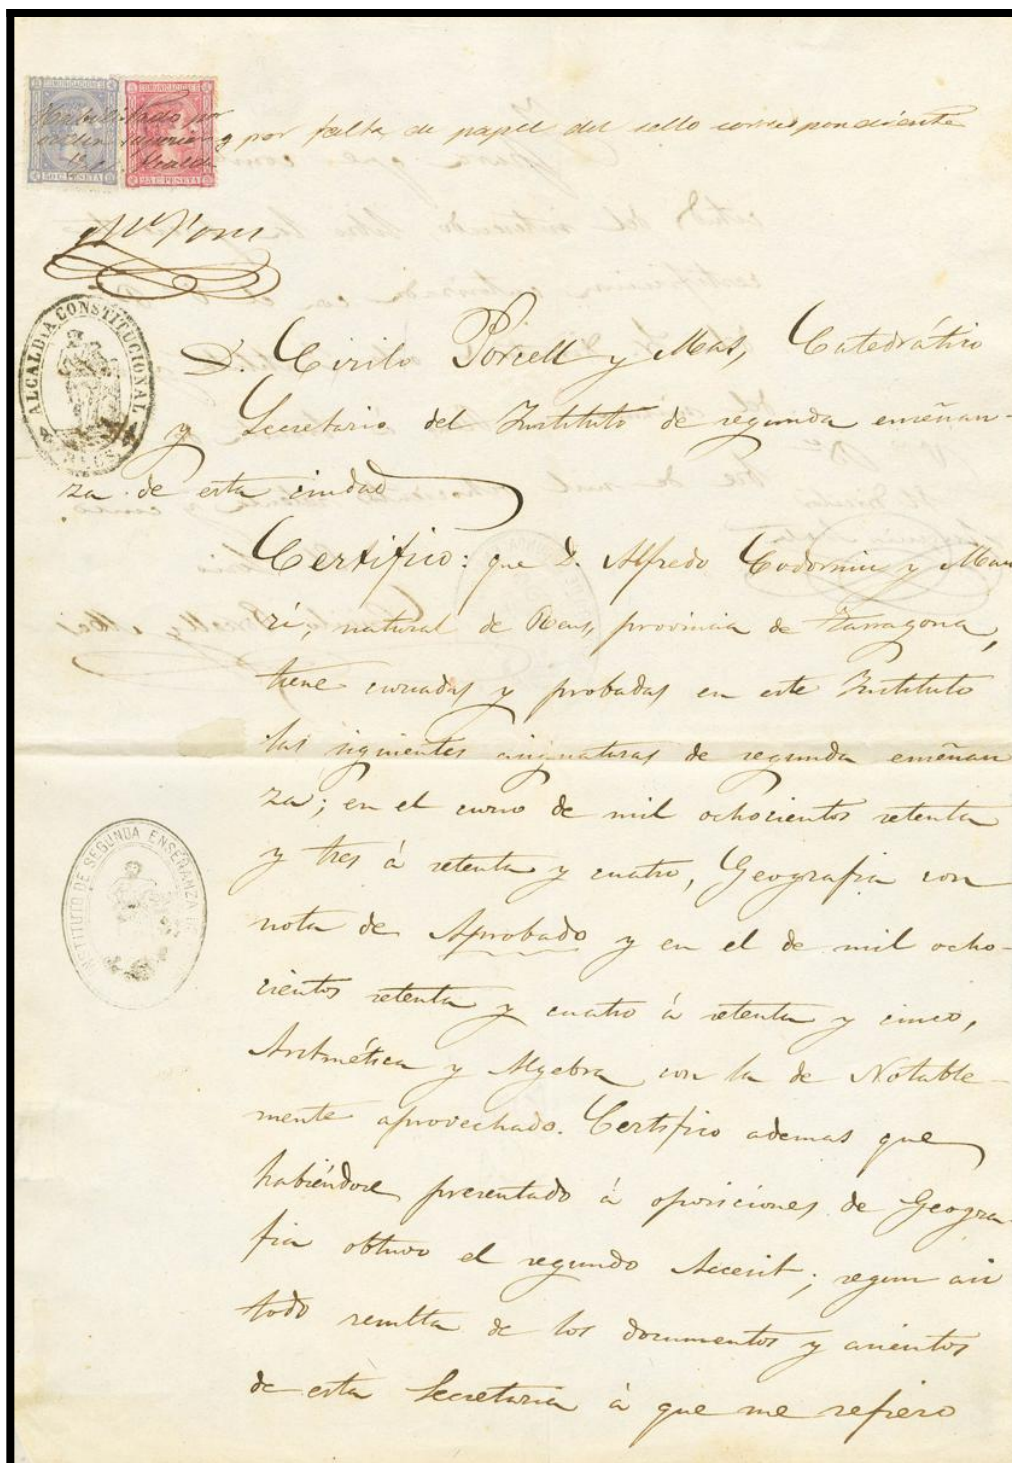 COMUNICACIONES COMUNICACIONES
Habilitado por
orden superior y por falta de papel del sello correspondiente
El Alcalde
50 C. PESETA 25 C. PESETA
Pons
ALCALDIA CONSTITUCIONAL
REUS
D. Cirilo Porcell y Mas, Catedrático
y Secretario del Instituto de segunda enseñan-
za de esta ciudad
Certifico: que D. Alfredo Codorniu y Mau
ri, natural de Reus, provincia de Tarragona,
tiene cursadas y probadas en este Instituto
las siguientes asignaturas de segunda enseñan
za; en el curso de mil ochocientos setenta
y tres á setenta y cuatro, Geografia con
nota de Aprobado y en el de mil ocho-
cientos setenta y cuatro á setenta y cinco,
Aritmética y Algebra con la de Notable-
mente aprovechado. Certifico ademas que
habiéndose presentado á oposiciones de Geogra-
fia obtuvo el segundo Accesit; segun asi
todo resulta de los documentos y asientos
de esta Secretaria á que me refiero
INSTITUTO DE SEGUNDA ENSEÑANZA